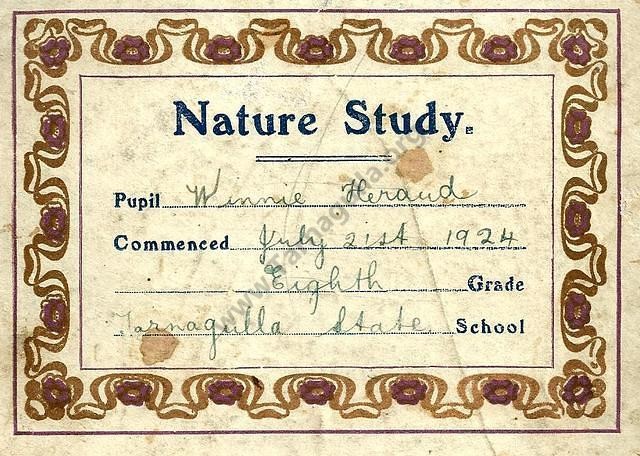 Nature Study.
Pupil Winnie Heraud
Commenced July 21st 1924
Eighth Grade
Tarnagulla State School
www.tarnagulla.org